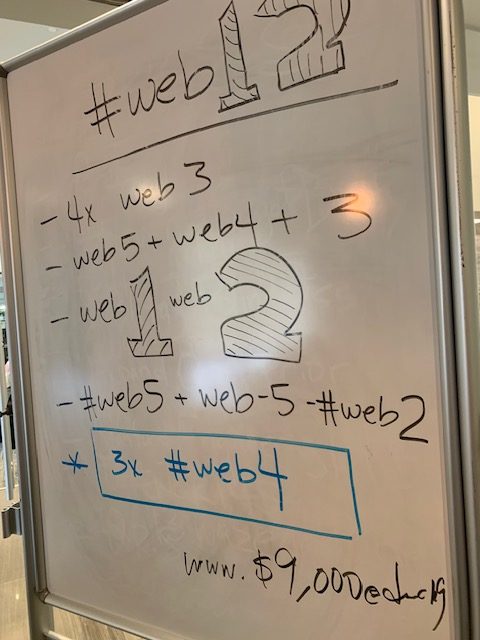 #web12
- 4x web3
- web5 + web4 + 3
- web1 web2
- #web5 + web-5 - #web2
* 3x #web4
www.$9,000